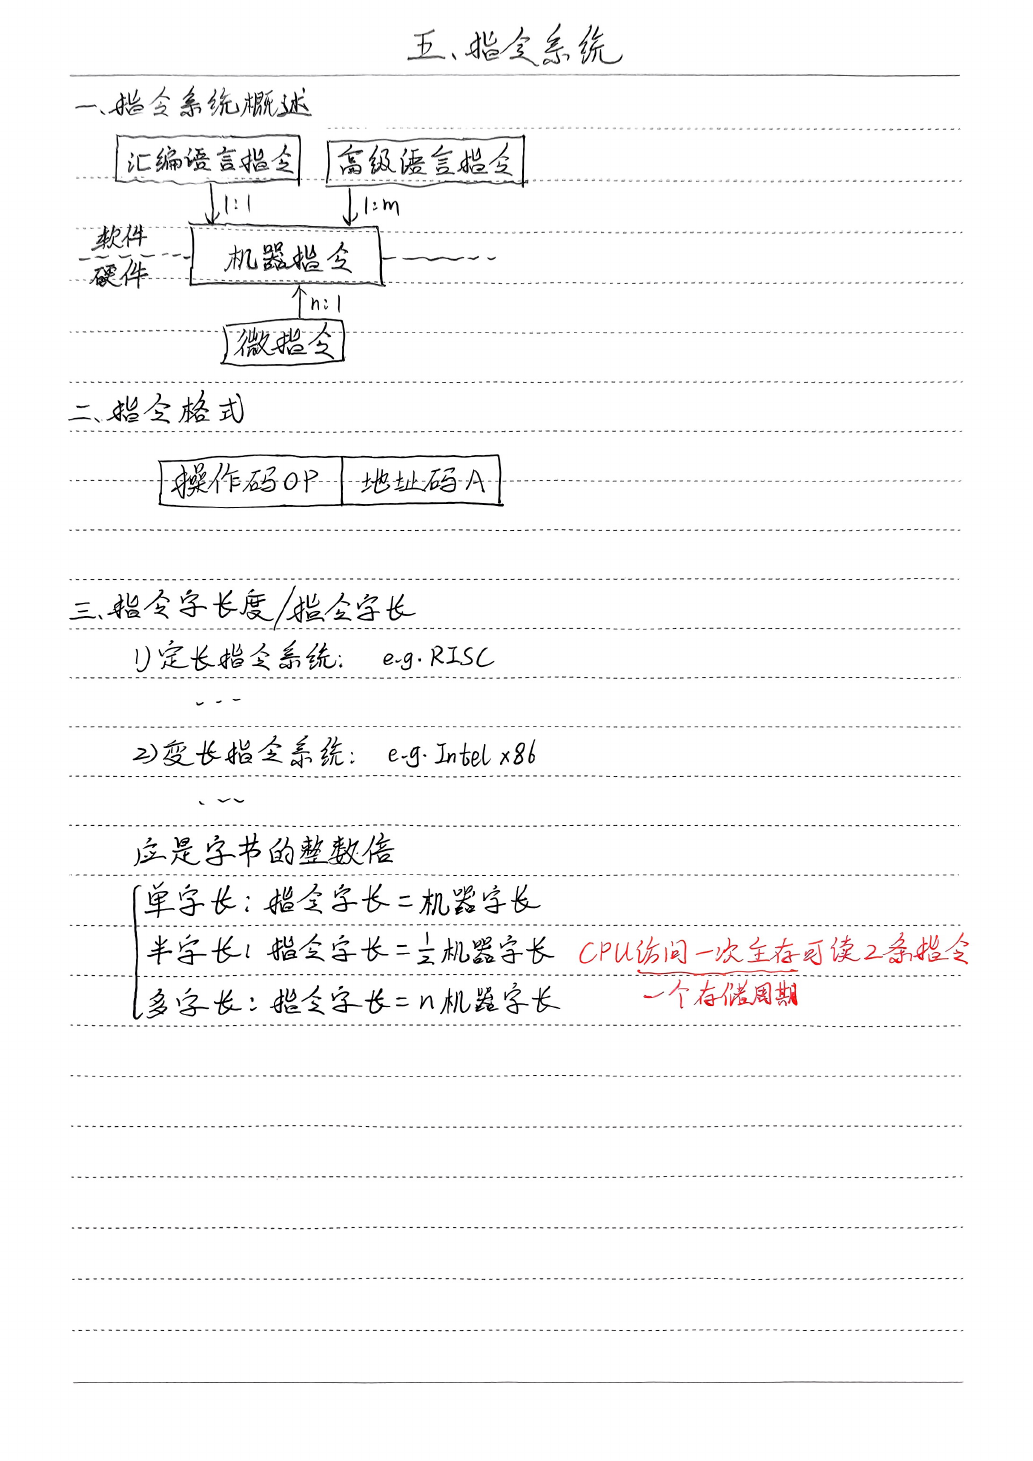 五、指令系统
一、指令系统概述
汇编语言指令 高级语言指令
1:1 1:m
软件
机器指令
硬件
n:1
微指令
二、指令格式
操作码OP 地址码A
三、指令字长度/指令字长
1)定长指令系统: e.g. RISC
...
2)变长指令系统: e.g. Intel x86
...
应是字节的整数倍
单字长: 指令字长=机器字长
半字长: 指令字长=1/2机器字长 CPU访问一次主存可读2条指令
多字长: 指令字长=n机器字长 一个存储周期